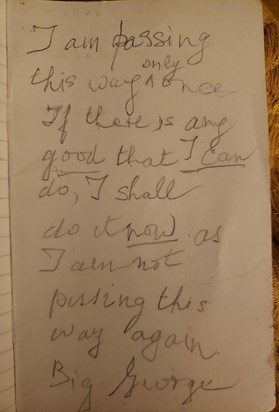 I am passing
this way only once
If there is any
good that I can
do, I shall
do it now. as
I am not
pissing this
way again
Big George